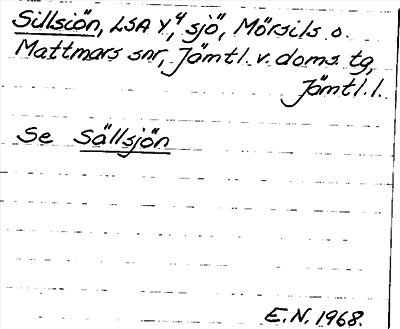 Sillsiön, LSA Y,4 sjö, Mörsils o.
Mattmars snr, Jämtl. v. doms. tg,
Jämtl. l.
Se Sällsjön
E.N. 1968.